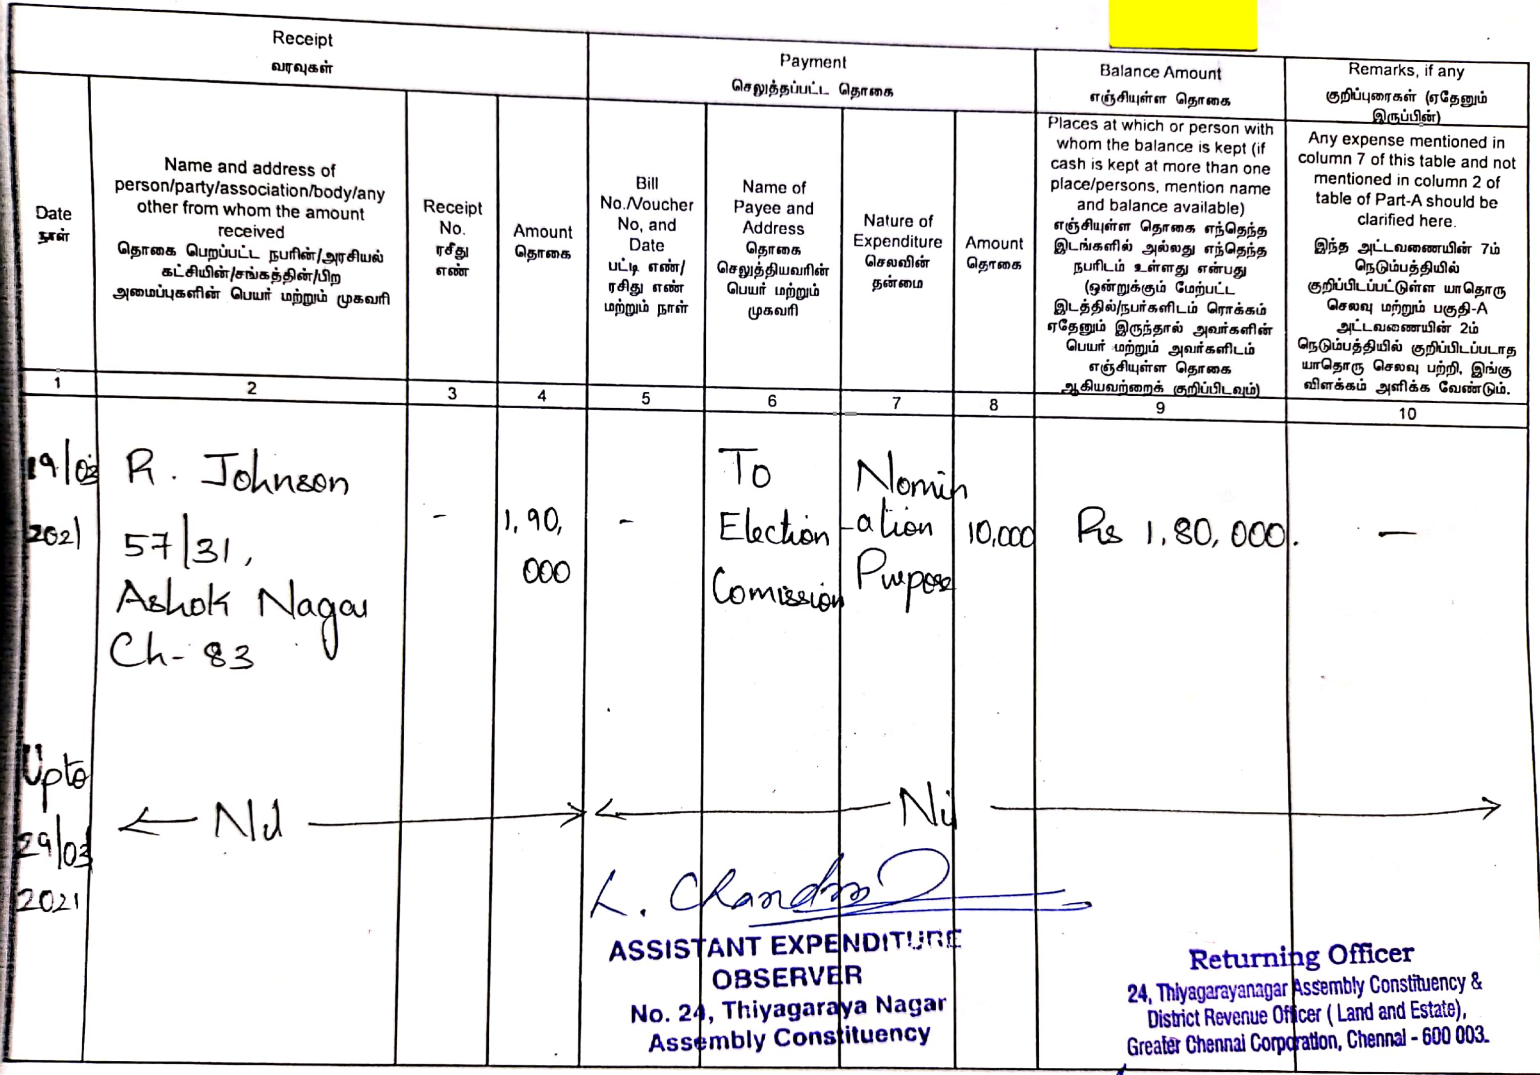 Receipt
வரவுகள்
Payment
செலுத்தப்பட்ட தொகை
Balance Amount
எஞ்சியுள்ள தொகை
Remarks, if any
குறிப்புரைகள் (ஏதேனும்
இருப்பின்)
Date
நாள்
Name and address of
person/party/association/body/any
other from whom the amount
received
தொகை பெறப்பட்ட நபரின்/அரசியல்
கட்சியின்/சங்கத்தின்/பிற
அமைப்புகளின் பெயர் மற்றும் முகவரி
Receipt
No.
ரசீது
எண்
Amount
தொகை
Bill
No./Voucher
No, and
Date
பட்டி எண்/
ரசிது எண்
மற்றும் நாள்
Name of
Payee and
Address
தொகை
செலுத்தியவரின்
பெயர் மற்றும்
முகவரி
Nature of
Expenditure
செலவின்
தன்மை
Amount
தொகை
Places at which or person with
whom the balance is kept (if
cash is kept at more than one
place/persons, mention name
and balance available)
எஞ்சியுள்ள தொகை எந்தெந்த
இடங்களில் அல்லது எந்தெந்த
நபரிடம் உள்ளது என்பது
(ஒன்றுக்கும் மேற்பட்ட
இடத்தில்/நபர்களிடம் ரொக்கம்
ஏதேனும் இருந்தால் அவர்களின்
பெயர் மற்றும் அவர்களிடம்
எஞ்சியுள்ள தொகை
ஆகியவற்றைக் குறிப்பிடவும்)
Any expense mentioned in
column 7 of this table and not
mentioned in column 2 of
table of Part-A should be
clarified here.
இந்த அட்டவணையின் 7ம்
நெடும்பத்தியில்
குறிப்பிடப்பட்டுள்ள யாதொரு
செலவு மற்றும் பகுதி-A
அட்டவணையின் 2ம்
நெடும்பத்தியில் குறிப்பிடப்படாத
யாதொரு செலவு பற்றி, இங்கு
விளக்கம் அளிக்க வேண்டும்.
1 2 3 4 5 6 7 8 9 10
19/03
2021
R. Johnson
57/31,
Ashok Nagar
Ch- 83
-
1,90,
000
-
To
Election
Comission
Nomin
-ation
Purpose
10,000
Rs 1,80,000.
-
Upto
29/03
2021
Nil
Nil
L. Chandra
ASSISTANT EXPENDITURE
OBSERVER
No. 24, Thiyagaraya Nagar
Assembly Constituency
Returning Officer
24, Thiyagarayanagar Assembly Constituency &
District Revenue Officer ( Land and Estate),
Greater Chennai Corporation, Chennai - 600 003.